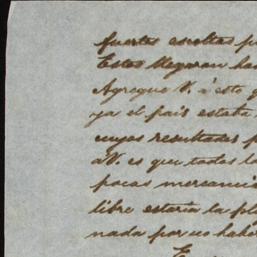 fuertes escoltas p
Estos llegaron ha
Agregue V. á esto q
ya el pais estaba
cuyos resultados p
á V. es que todos lo
pocas mercancí
libre estaria la pl
nada por no habe